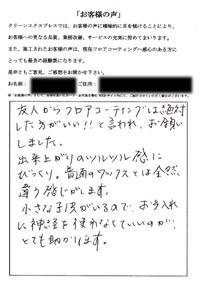 「お客様の声」
クリーンエクスプレスでは、お客様の声に積極的に耳を傾けることにより、
お客様への更なる品質、業務改善、サービスの充実に努めてまいります。
また、施工されたお客様の声は、現在フロアコーティングへ感心のある方に
とっても最良の経験談になります。
是非ともご意見、ご感想をお聞かせ下さい。
お名前
ご住所
友人からフロアコーティングは絶対
した方がいい!!と言われ、お願い
しました。
出来上がりのツルツル感に
びっくり。普通のワックスとは全然
違う感じがします。
小さな子供がいるので、お手入れ
に神経を使わなくていいのが、
とても助かります。